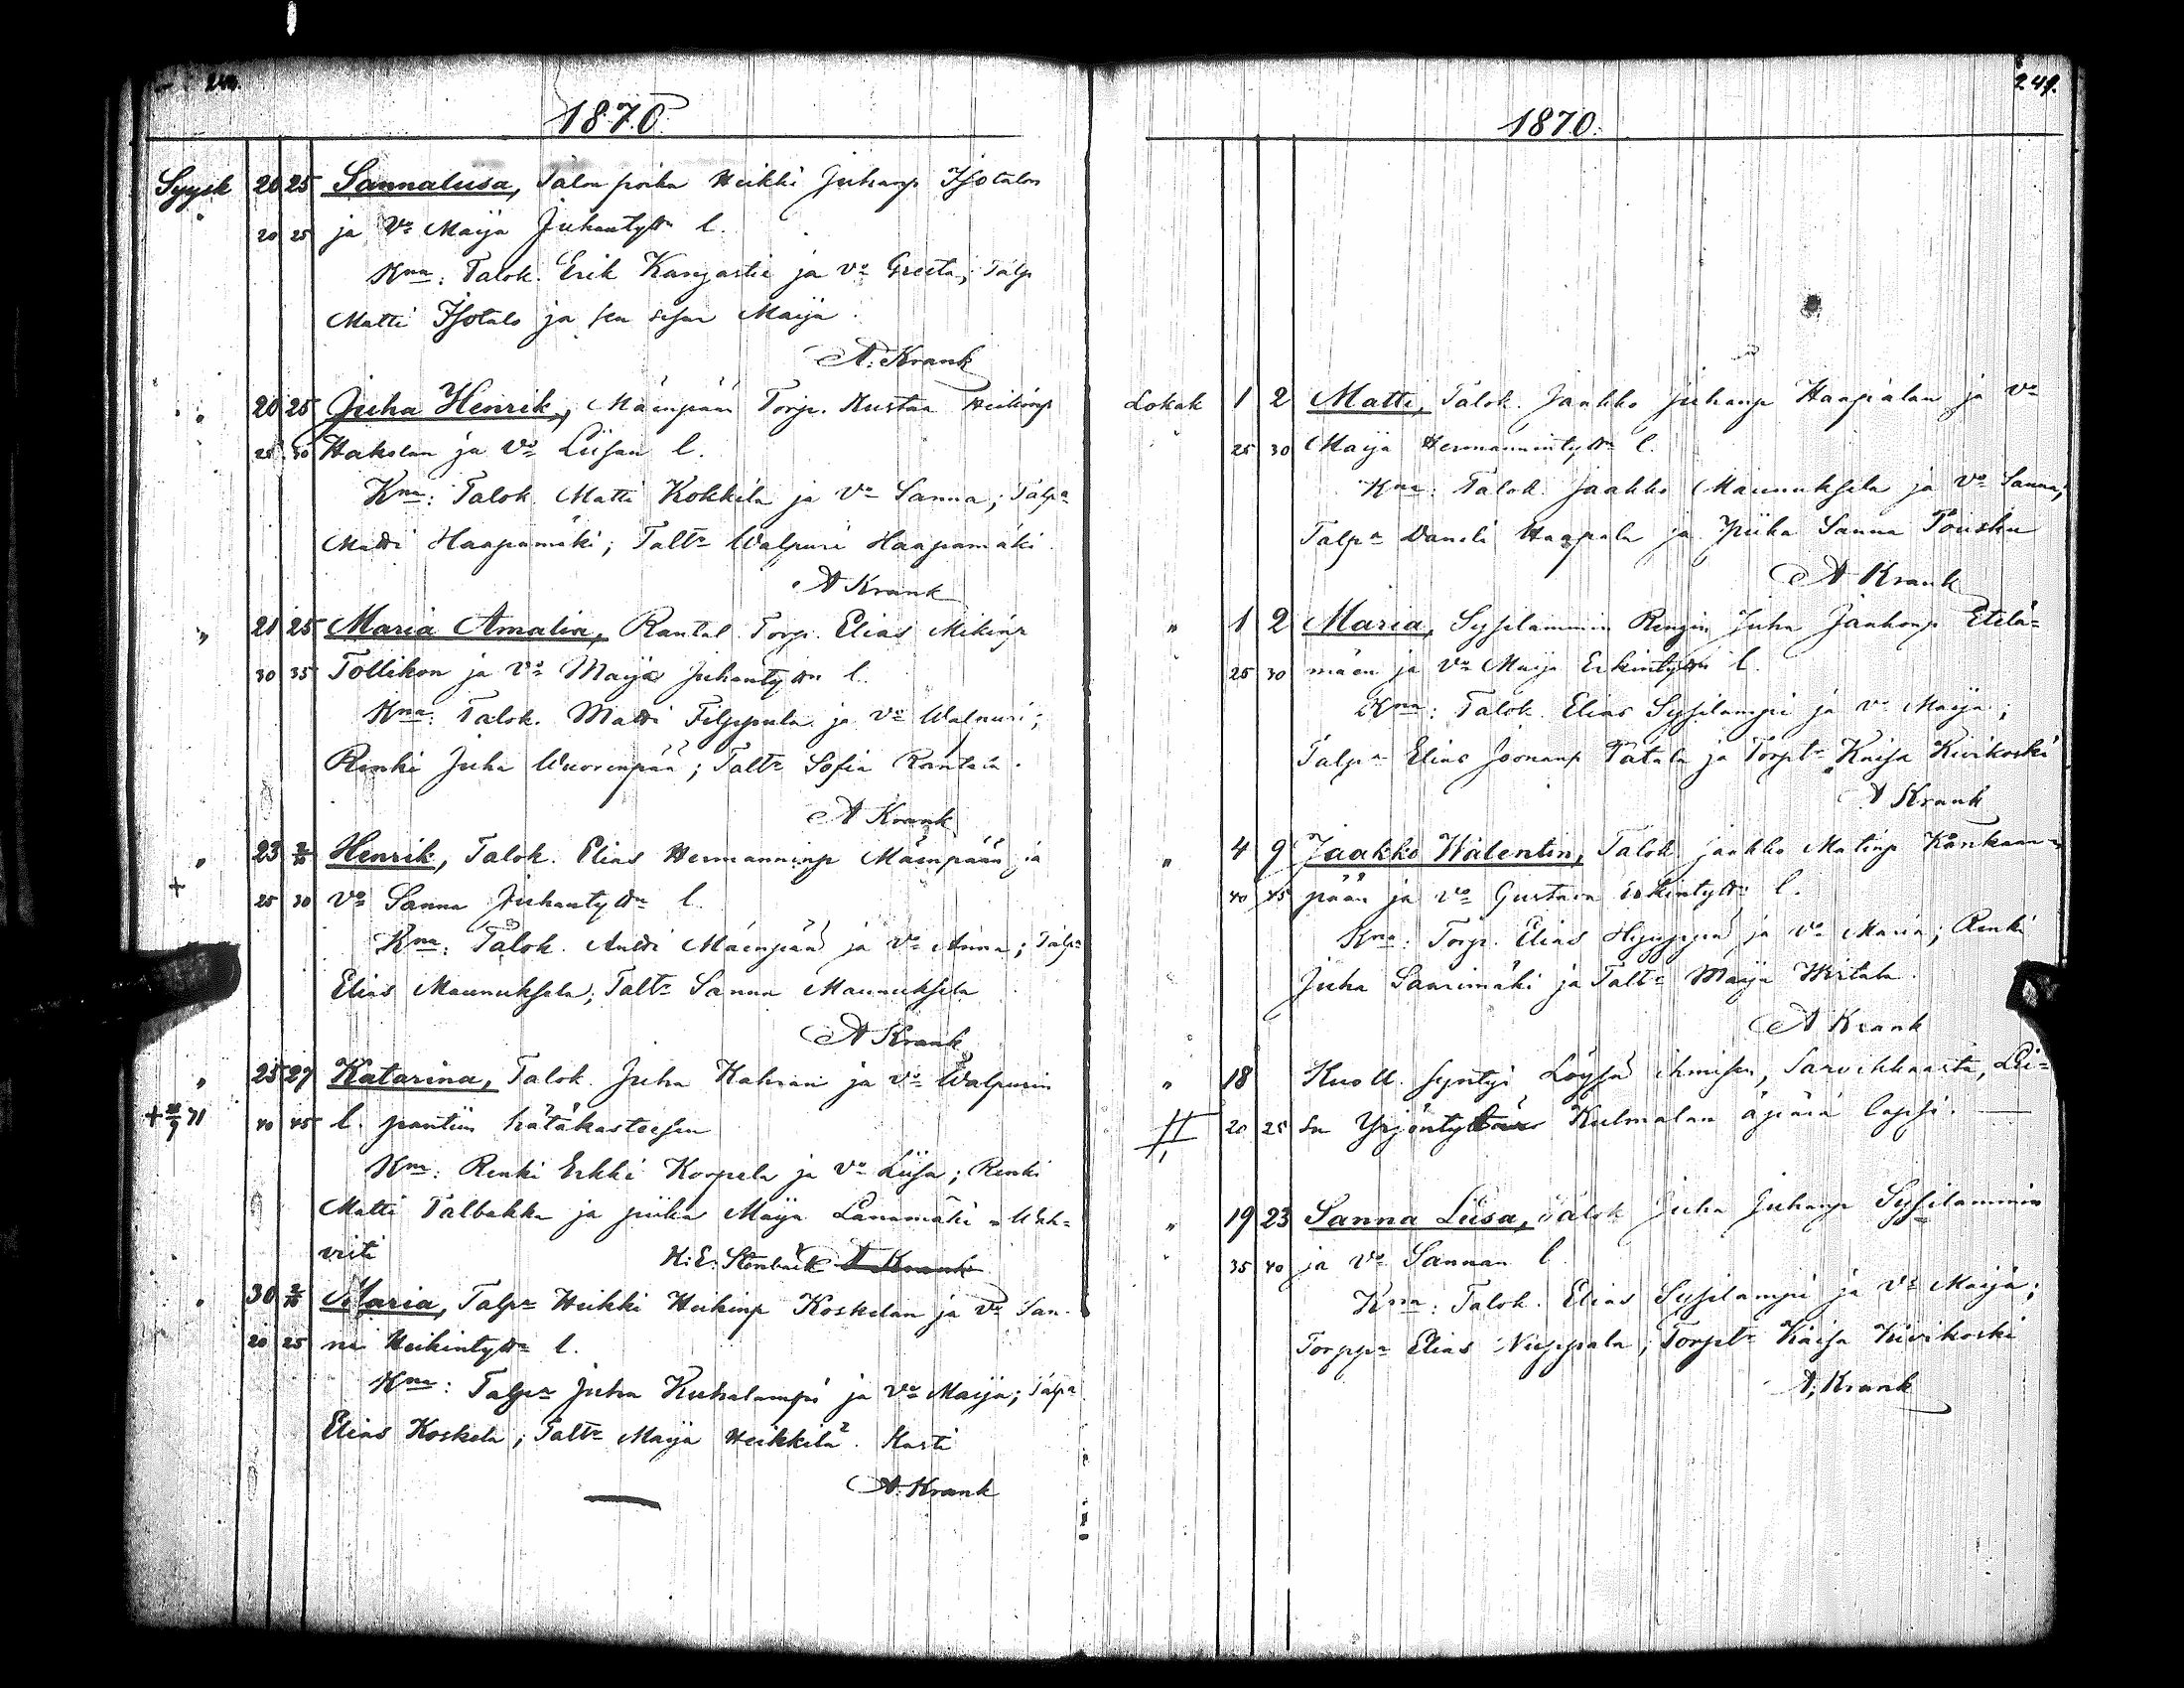 1870
Syysk 20 25 Sannaliisa, Talon poika Heikki Juhanp Isotalon
" 20 25 ja Vo Maija Juhantyttn l.
Kna: Talok. Erik Kangastie ja Vo Greeta; Talp
Matti Isotalo ja sen sisar Maija.
A. Krank
" 20 25 Juha Henrik, Mäenpään Torp. Kustaa Heikinp
25 30 Hakolan ja Vo Liisan l.
Kna: Talok. Matti Kokkila ja Vo Sanna; Talpa
Matti Haapamäki; Taltr Walpuri Haapamäki.
A Krank
" 21 25 Maria Amalia, Rantal. Torp. Elias Mikinp
30 35 Tollikon ja Vo Maija Juhantyttn l.
Kna: Talok. Matti Filppula ja Vo Walpuri;
Renki Juha Wuorenpää; Taltr Sofia Rantala.
A Krank
" 23 2/10 Henrik, Talok. Elias Hermanninp Mäenpään ja
+ 25 30 Vo Sanna Juhantyttn l.
Kna: Talok. Antti Mäenpää ja Vo Anna; Talpa
Elias Maunuksela; Taltr Sanna Maunuksela
A Krank
" 25 27 Katarina, Talok. Juha Kahran ja Vo Walpurin
+ 71 40 45 l. pantiin hätäkasteesen
Kna: Renki Erkki Korpela ja Vo Liisa; Renki
Matti Talbakka ja piika Maija Lanamäki
H. E. Stenbäck A Krank
" 30 2/10 Maria, Talpn Heikki Heikinp Koskelan ja Vo San-
20 25 na Heikintyttn l.
Kna: Talpa Juha Kuhalampi ja Vo Maija; Talpa
Elias Koskela; Taltr Maija Heikkilä. Kasti
A. Krank
249.
1870.
Lokak 1 2 Matti, Talok. Jaakko Juhanp Haapalan ja Vo
" 25 30 Maija Hermannintyttn l.
Kna: Talok. Jaakko Maunuksela ja Vo Sanna;
Talpa Haapala ja Piika Sanna Pousku
A Krank
" 1 2 Maria, Sysilammin Rengin Juha Jaakonp Etelä=
" 25 30 mäen ja Vo Maija Erkintyttn l.
Kna: Talok. Elias Sysilampi ja Vo Maija;
Talpa Elias Joonanp Tatala ja Torptr Kaisa Kivikoski
A Krank
" 4 9 Jaakko Walentin, Talok. Jaakko Matinp Kankaan=
40 45 pään ja Vo Gustava Erkintyttn l.
Kna: Torp. Elias ja Vo Maria; Renki
Juha Saarimäki ja Taltr Maija Wirtala.
A Krank
" 18 Kuoll. syntyi Löysä ihmisen, Sarvikkaasta, Lii=
20 25 sa Yrjöntyttären Kulmalan äpärä lapsi.
" 19 23 Sanna Liisa, Talok Juha Juhanp Sysilammin
" 35 40 ja Vo Sannan l
Kna: Talok. Elias Sysilampi ja Vo Maija;
Torppa Elias Nuppala; Torptr Kaisa Kivikoski
A. Krank